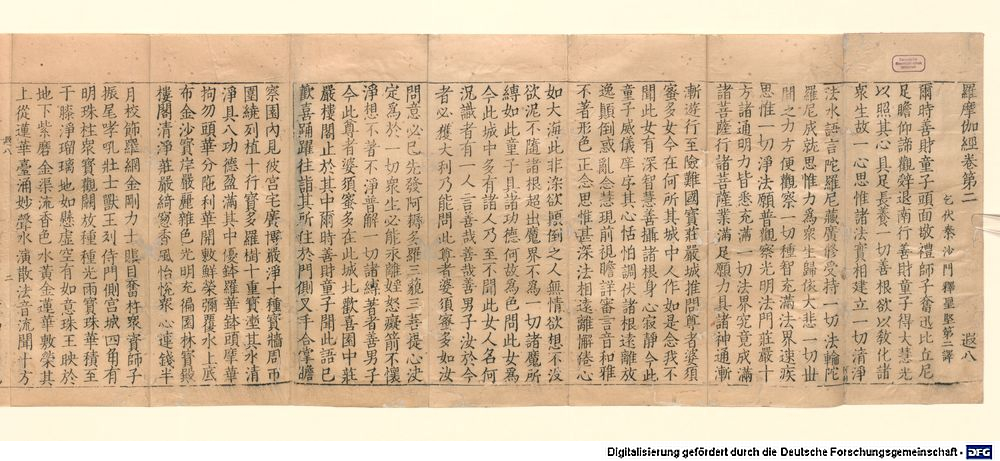 羅摩伽經卷第二 遐八
乞伏秦沙門釋聖堅第二譯
爾時善財童子頭面敬禮師子奮迅比丘尼
足瞻仰諦觀辭退南行善財童子得大慧光
以照其心具足長養一切善根欲以教化諸
衆生故一心思惟諸法實相建立一切清淨
法水語言陀羅尼藏廣修受持一切法輪陀
羅尼成就思惟力爲衆生歸依大悲一切世
間之力方便觀察一切種智充滿法界速疾
思惟一切淨法願普觀察光明法門莊嚴十
方諸通明力皆悉充滿一切法界究竟成滿
諸菩薩行諸菩薩業滿足願力具諸神通漸
漸遊行至險難國寶莊嚴城推問尊者婆須
蜜多女今在何所其城中人作如是念我不
聞此女有深智慧善攝諸根身心寂靜今此
童子威儀庠序其心恬怕調伏諸根遠離放
逸顛倒惑亂念慧現前視瞻詳審言音和雅
不著形色正念思惟甚深法相遠離懈倦心
如大海此非染欲顛倒之人無情欲想不没
欲泥不隨諸根超出魔界不爲一切諸魔所
縛如此童子具諸功德何故爲色問此女爲
今此城中多有諸人乃至不聞此女人名何
況識者有一人言善哉善哉男子汝於今
者必獲大利乃能問此尊者婆須蜜多如汝
問意必已先發阿耨多羅三藐三菩提心決
定爲於一切衆生必能永離婬怒癡箭不懷
淨想不著不淨普解一切諸縛著者善男子
今此尊者婆須蜜多在此城北歡喜園中莊
嚴樓閣止於其中爾時善財童子聞此語已
歡喜踊躍往詣其所住於門側又手合掌瞻
察園內見彼宮宅廣博嚴淨十種寶牆周帀
圍繞列植十行寶多羅樹十重寶壍其水清
淨具八功德盈滿其中優鉢羅華鉢頭摩華
拘勿頭華分陁利華開敷鮮榮彌覆水上底
布金沙寶岸嚴麗雜色光明充徧園林寶殿
樓閣清淨莊嚴綺窓香風怡悅衆心連錢半
月校飾羅網金剛力士瞋目奮杵衆寶師子
振尾哮吼壯士獸王列侍門側宮城四角有
明珠柱衆寶觀闕放種種光雨寶珠華積至
于膝淨瑠璃地如懸虛空有如意珠王映於
地下紫磨金渠流香色水黃金蓮華敷榮其
上從蓮華臺涌妙聲水演散法音流聞十方
遐八 二
Digitalisierung gefördert durch die Deutsche Forschungsgemeinschaft - DFG